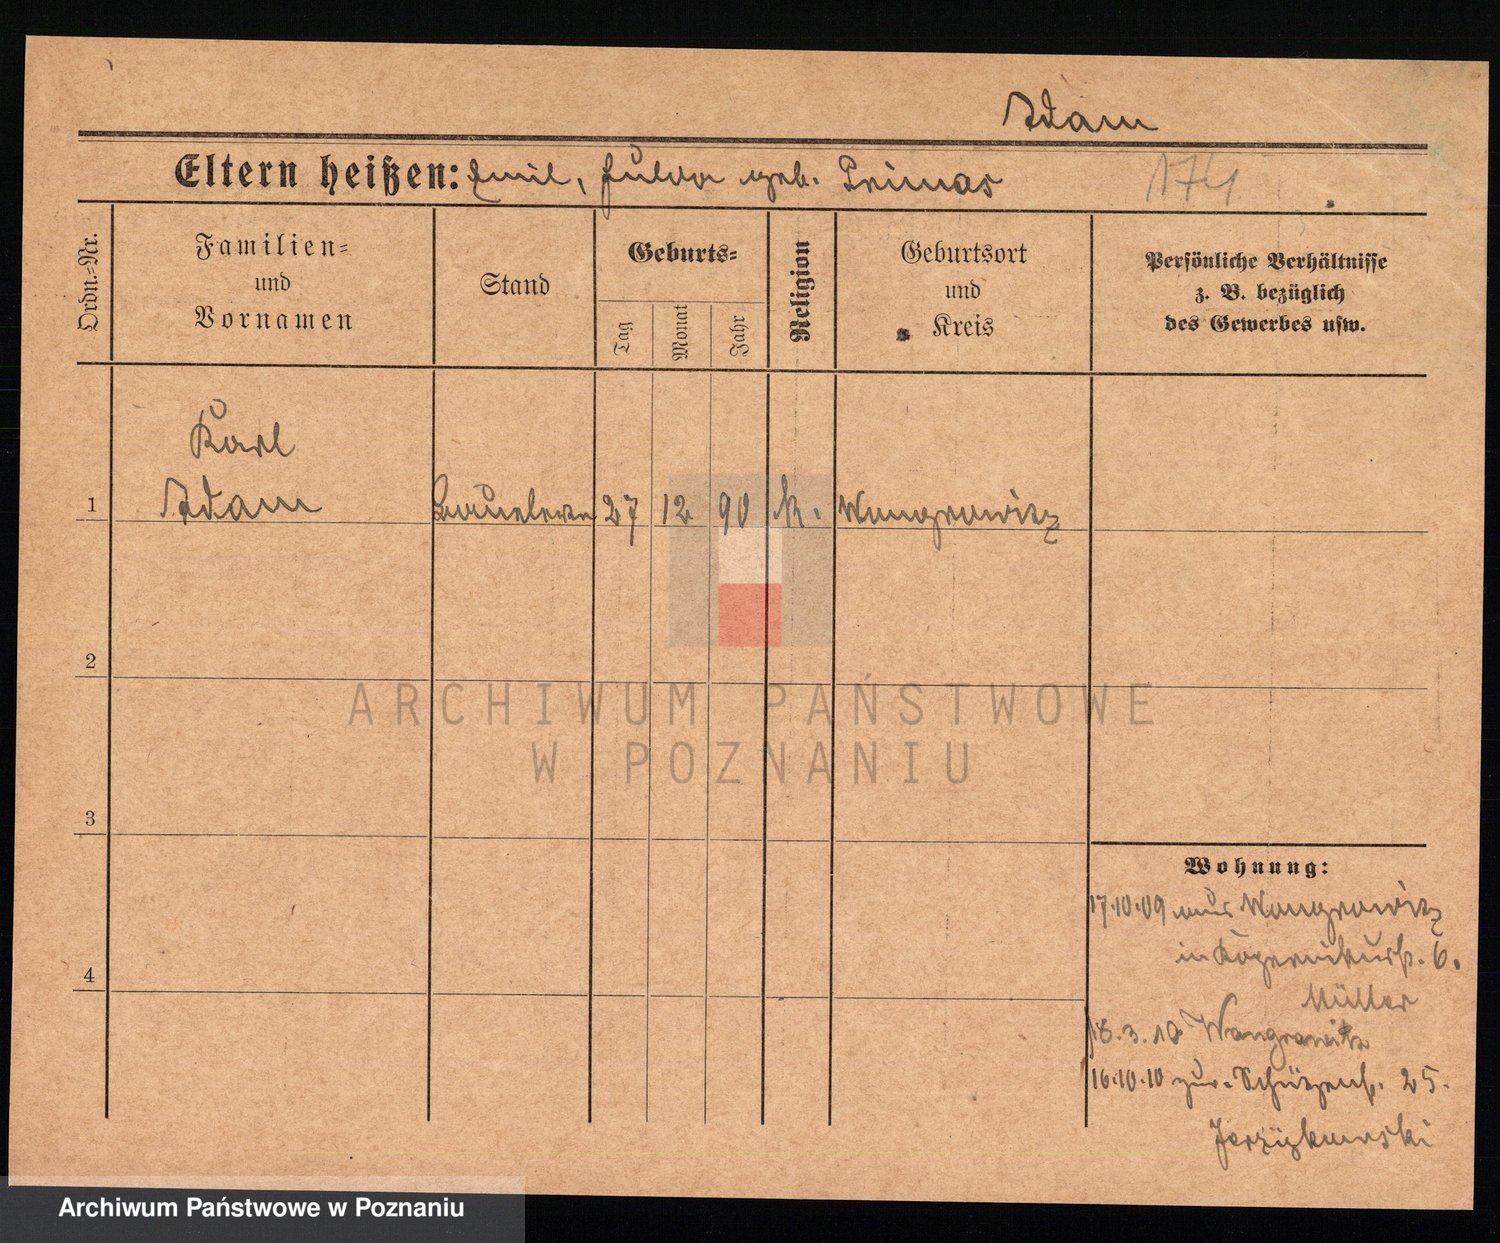 Adam
Eltern heißen: Emil, Hulda geb. Primas
174
Ordn.=Nr.
Familien=
und
Vornamen
Stand
Geburts=
Tag
Monat
Jahr
Religion
Geburtsort
und
Kreis
Persönliche Verhältnisse
z. B. bezüglich
des Gewerbes usw.
Karl
1 Adam 27 12 90 k. Wongrowitz
2
3
4
Wohnung:
17.10.09 aus Wongrowitz
in 6.
Müller
18.3.10 Wongrowitz
16.10.10 zur. Schützenstr. 25.
ARCHIWUM PAŃSTWOWE
W POZNANIU
Archiwum Państwowe w Poznaniu